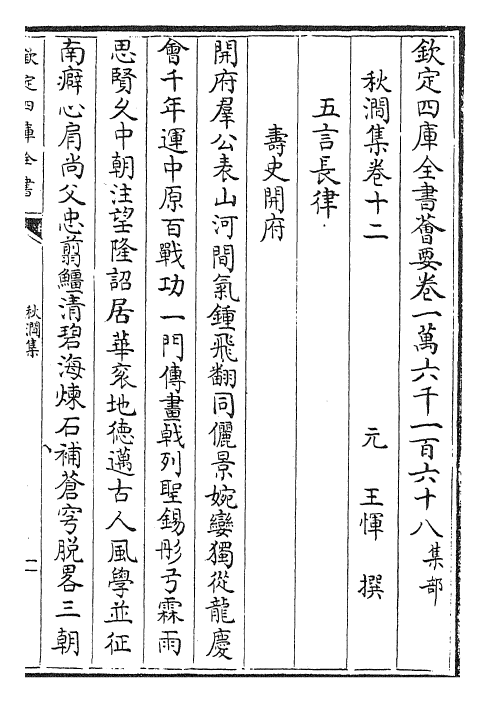 欽定四庫全書薈要卷一萬六千一百六十八集部
秋澗集卷十二　　　元　王惲　撰
五言長律
壽史開府
開府羣公表山河間氣鍾飛翻同儷景婉孌獨從龍慶
會千年運中原百戰功一門傳畫戟列聖錫彤弓霖雨
思賢乆中朝注望隆詔居華衮地徳邁古人風學並征
南癖心肩尚父忠翦鱷清碧海煉石補蒼穹脱畧三朝
欽定四庫全書
秋澗集
一